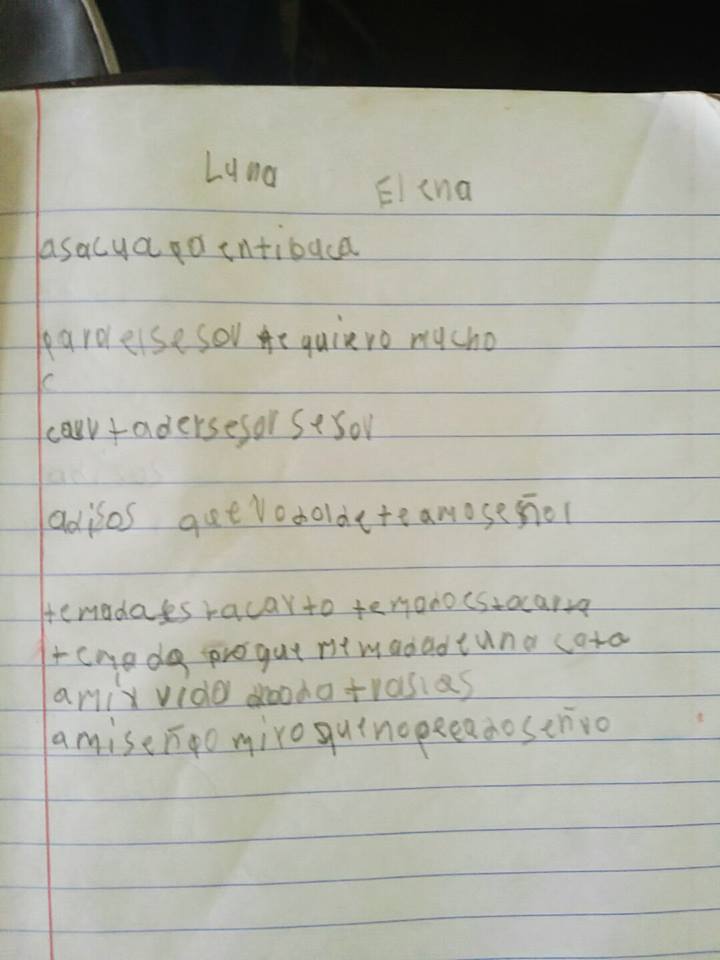 Luna Elena
asacuapa entibuca
paraelsesor te quiero mucho
c
cauvtadersesor sesor
adisos que vodolde teamoseñol
temadaestacarto temadoestacarta
temada proque memadadeuna cata
amix vida dooda trasias
amiseñqo miro quenopeeadoseñvo